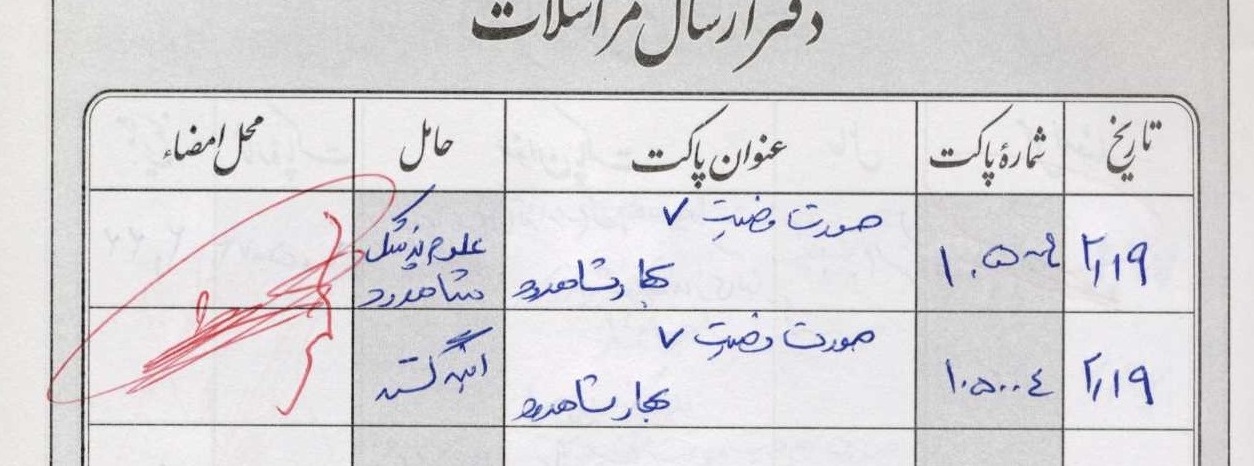 دفتر ارسال مراسلات
تاریخ شمارهٔ پاکت عنوان پاکت حامل محل امضاء
۲/۱۹ صورت وضعیت ۷ علوم پزشکی
بهار شاهرود شاهرود
۲/۱۹ ۱۰۵۰۰۴ صورت وضعیت ۷
بهار شاهرود